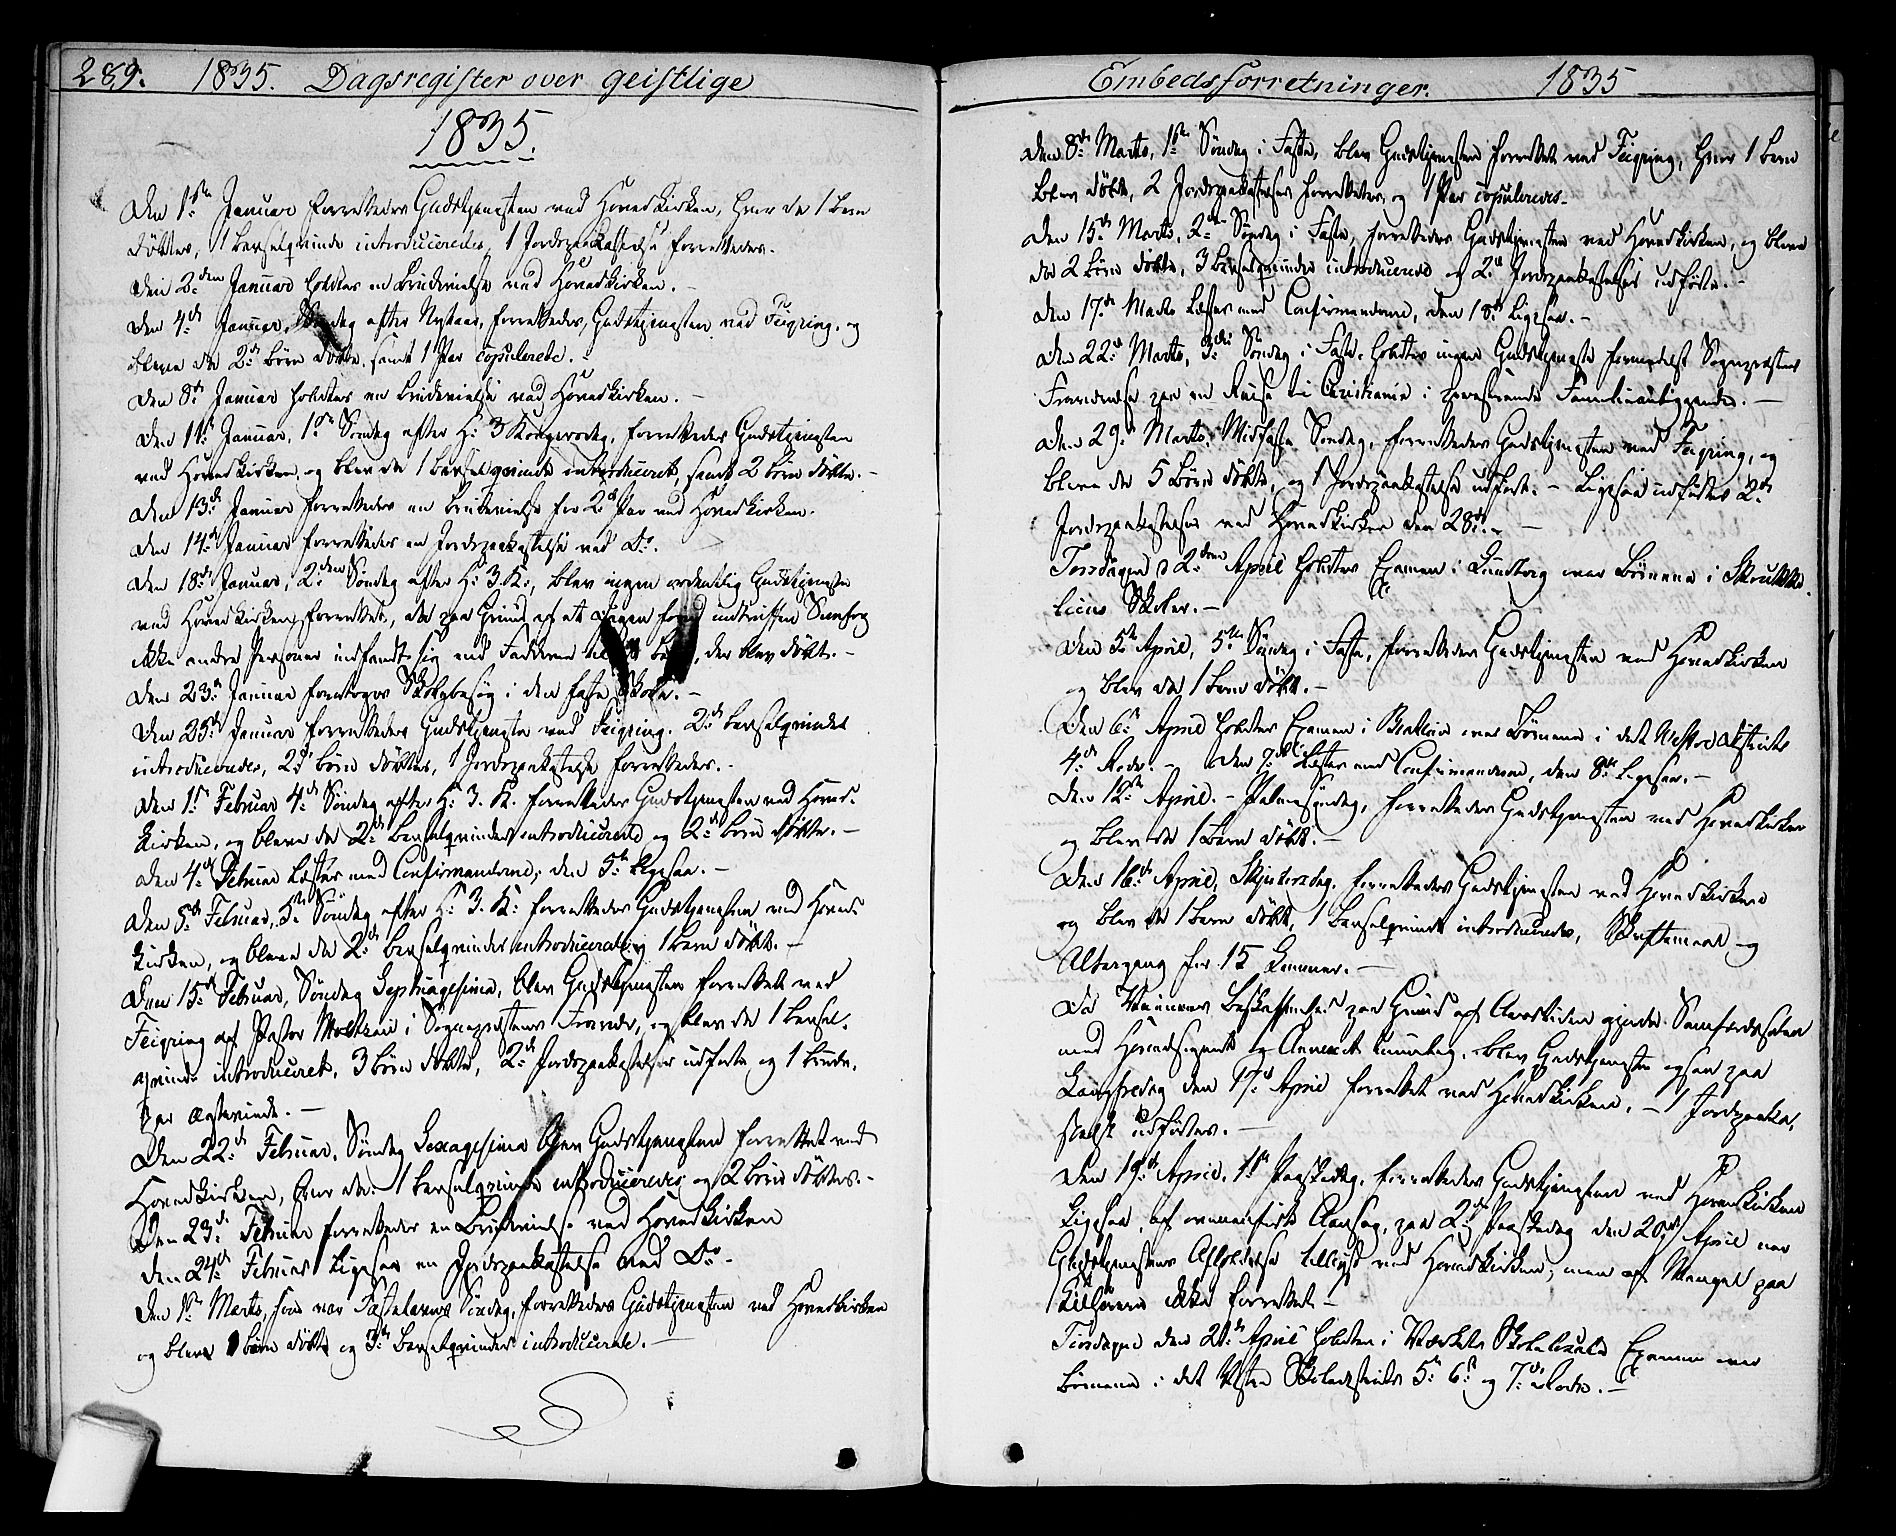 289. 1835. Dagsregister over geistlige
1835.
Den 1ste Januar forrettedes Gudstjenesten ved Hovedkirken, hvor da 1 barn
döbtes, 1 barselqvinde introduceredes, 1 Jordpaakastelse forrettedes.
Den 2den Januar holdtes en Brudevielse ved Hovedkirken. –
Den 4de Januar, Söndag efter Nytaar, forrettedes Gudstjenesten ved Feiring, og
bleve da 2de börn döbte, samt 1 Par copulerede. –
Den 8de Januar holdtes en Brudevielse ved Hovedkirken. –
Den 11te Januar, 1ste Söndag efter H: 3 Kongersdag, forrettedes Gudstjenesten
ved Hovedkirken, og blev da 1 barselqvinde introduceret, samt 2 börn döbte. –
Den 13de Januar forrettedes en Brudevielse for 2de Par ved Hovedkirken.
Den 14de Januar forrettedes en Jordpaakastelse ved Do.
Den 18de Januar, 2den Söndag efter H: 3. K:, blev ingen ordentlig Gudstjeneste
ved Hovedkirken forrettet, da paa Grund af et Dagen forud indtruffen Sneefog
ikke andre Personer indfandt sig end Fadderne til barn, der blev döbt. –
Den 23de Januar foretoges Skolebesög i den faste Skole. –
Den 25de Januar forrettedes Gudstjeneste ved Feiring. 2de barselqvinder
introduceredes, 2de börn döbtes, 1 Jordpaakastelse forrettedes. –
Den 1ste Februar 4de Söndag efter H: 3. K. forrettedes Gudstjenesten ved Hoved-
kirken, og bleve da 2de barselqvinder introducerede og 2de börn döbte. –
Den 4de Februar læstes med Confirmanderne, den 5te ligesaa. –
Den 8de Februar, 5te Söndag efter H: 3. K: forrettedes Gudstjenesten ved Hoved-
kirken, og bleve da 2de barselqvinder introducerede og 1 barn döbt. –
Den 15de Februar, Söndag Septuagesima, blev Gudstjenesten forrettet ved
Feiring af Pastor i Sognepræstens Fravær, og blev da 1 barsel-
qvinde introduceret, 3 börn döbte, 2de Jordpaakastelser udförte og 1 Brude-
par ægteviede. –
Den 22de Februar, Söndag Sexagesima blev Gudstjenesten forrettet ved
Hovedkirken, hvor da 1 barselqvinde introduceredes og 2 börn döbtes. –
Den 23de Februar forrettedes en Brudevielse ved Hovedkirken
Den 24de Februar ligesaa en Jordpaakastelse ved Do –
Den 1ste Marts, som var Fastelavns Söndag, forrettedes Gudstjenesten ved Hovedkirken
og bleve börn döbte og 3de barselqvinder introducerede. –
Embedsforretninger. 1835
Den 8de Marts, 1ste Söndag i Faste, blev Gudstjenesten forrettet ved Feiring, hvor 1 barn
blev döbt, 2 Jordpaakastelser forrettedes, og 1 Par copuleredes –
Den 15de Marts, 2den Söndag i Faste, forrettedes Gudstjenesten ved Hovedkirken, og bleve
da 2 börn döbte, 3 barselqvinder introducerede og 2de Jordpaakastelser udförte. –
Den 17de Marts læstes med Confirmanderne, den 18de ligesaa. –
Den 22de Marts, 3die Söndag i Faste, holdtes ingen Gudstjeneste formedelst Sognepræstens
Fraværelse paa en Reise til Christiania i Familieanliggender. –
Den 29de Marts, Midfaste Söndag, forrettedes Gudstjenesten ved Feiring, og
bleve da 5 börn döbte, og 1 Jordpaakastelse udfört. – Ligesaa udförtes 2de
Jordpaakastelser ved Hovedkirken den 28de. –
Torsdagen d 2den April holdtes Examen i Lundborg over Börnene i
liens Skoler. –
Den 5te April, 5te Söndag i Faste, forrettedes Gudstjenesten ved Hovedkirken
og blev da 1 barn döbt. –
Den 6te April holdtes Examen i over Börnene i det Vestre District
4de Rode. – Den 7de læstes med Confirmanderne, den 8de ligesaa. –
Den 12te April. – Palmesöndag, forrettedes Gudstjenesten ved Hovedkirken
og blev da 1 barn döbt. –
Den 16de April, Skjærtorsdag, forrettedes Gudstjenesten ved Hovedkirken
og blev da 1 barn döbt, 1 barselqvinde introduceredes, Skriftemaal og
Altergang for 15 Kommun. –
Da Veienes Beskaffenhed paa Grund af Aarstiden gjorde Samfærdselen
med Hovedsognet og Annexet umuelig, blev Gudstjenesten ogsaa paa
Langfredag den 17de April forrettet ved Hovedkirken, – 1 Jordpaaka-
stelse udförtes. –
Den 19de April, 1ste Paaskedag, forrettedes Gudstjenesten ved Hovedkirken
Ligesaa, af ovenanförte Aarsag, paa 2den Paaskedag den 20de April var
Gudstjenestens Afholdelse tillyst ved Hovedkirken, men af Mangel paa
Tilhörere ikke forrettet. –
Tirsdagen den 21de April holdtes i Værkets Skolelocale Examen over
Börnene i det Vestre Skoledistricts 5te 6te og 7de Rode. –